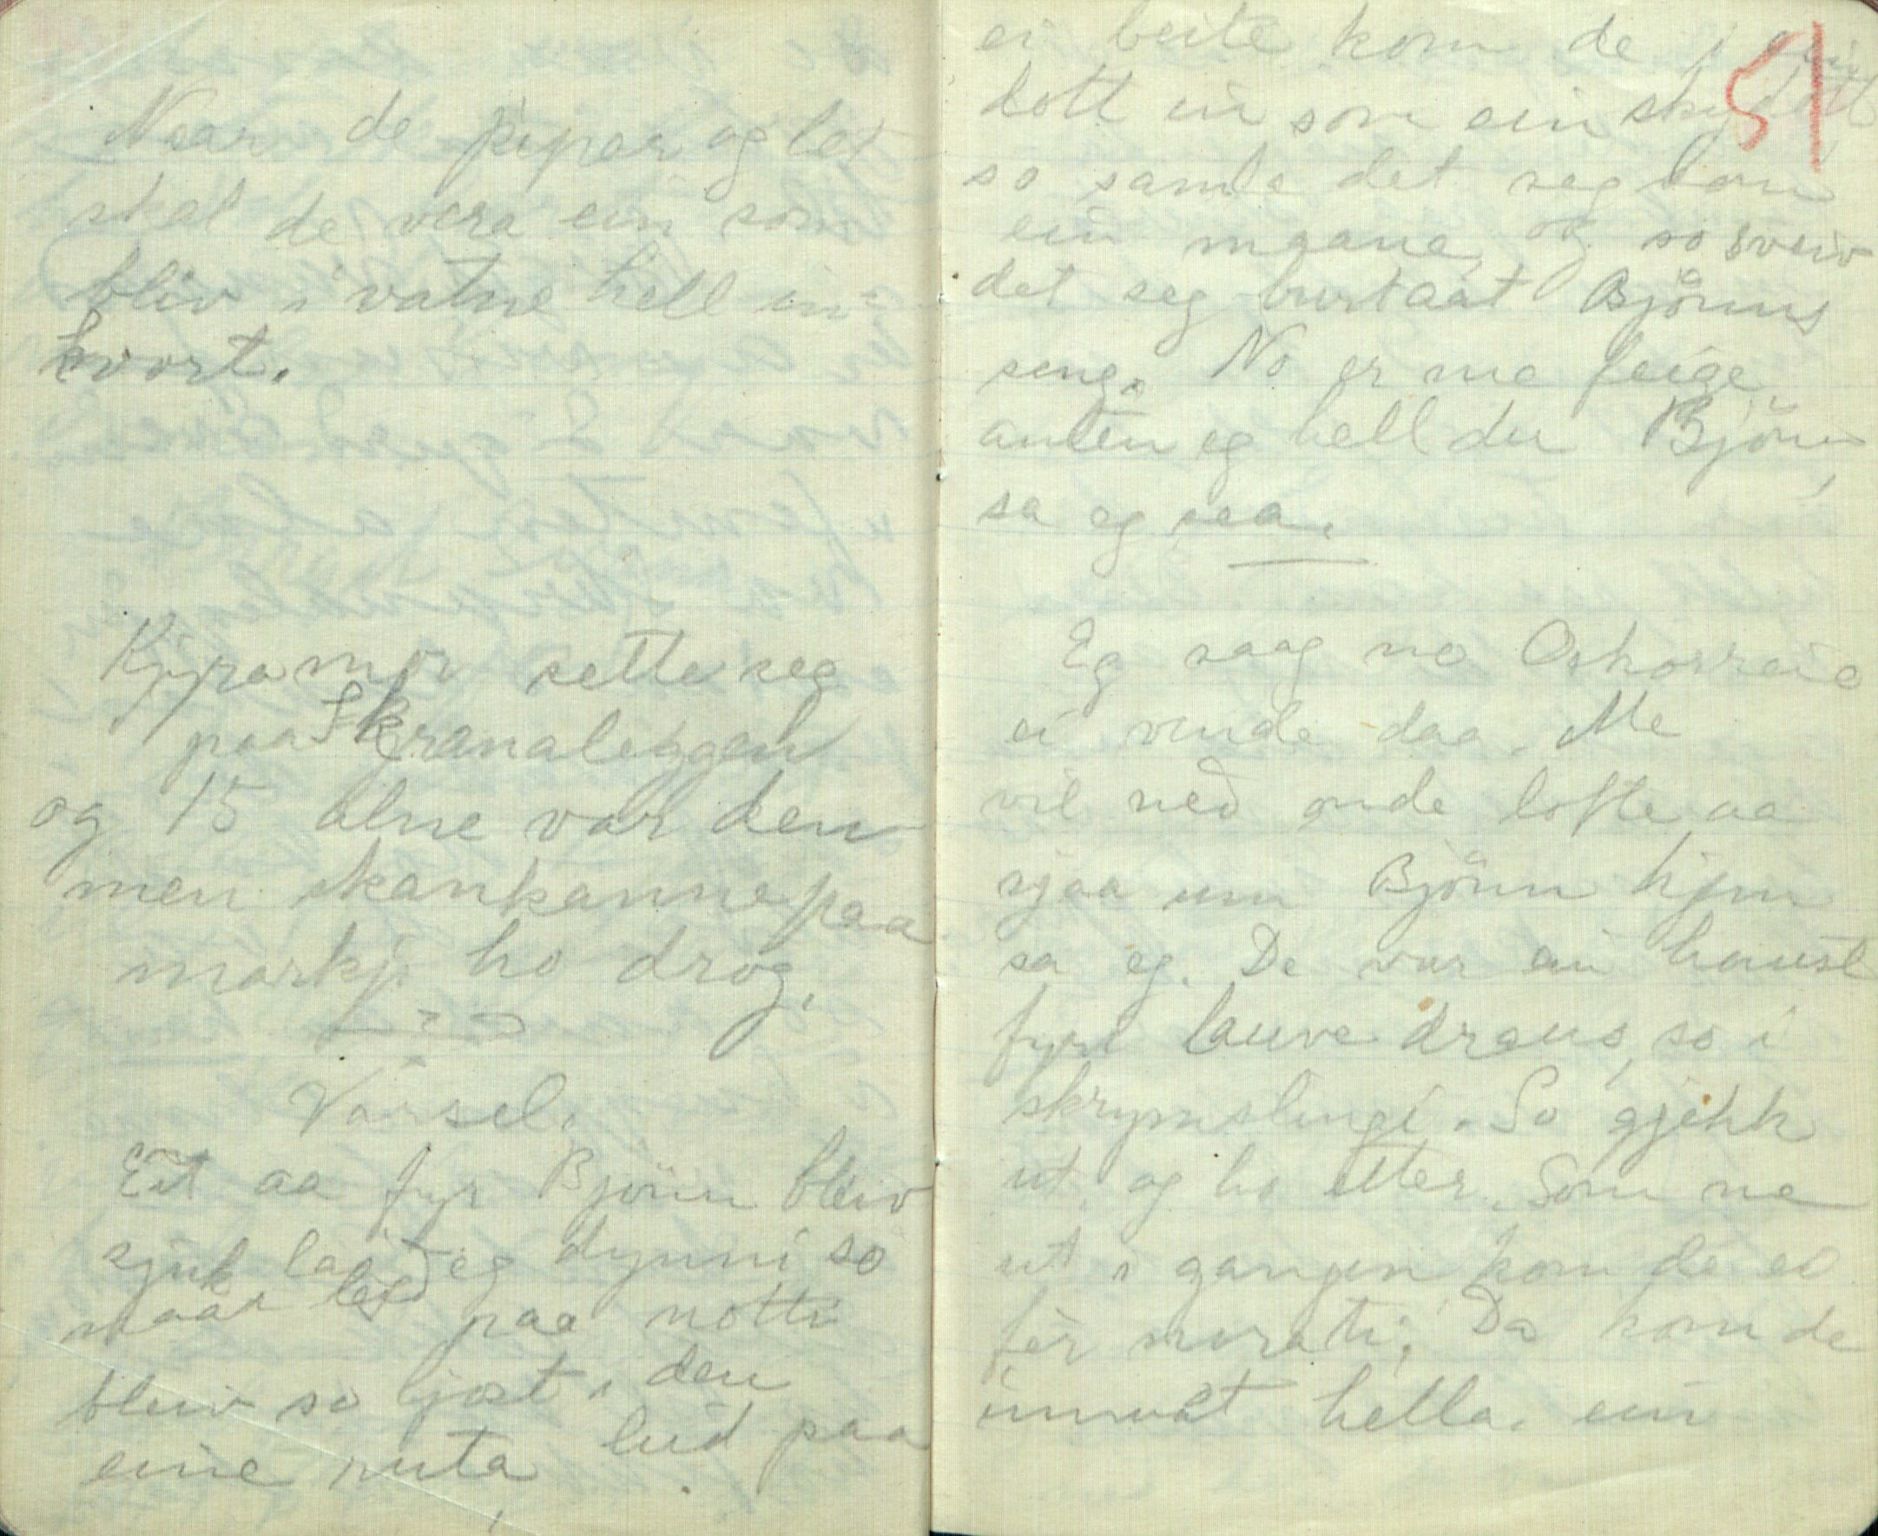 Naar de pipar og let
skal de vera ein som
bliv i vatne hell in-
kvort.
Kjyramor sette seg
paa Skranaleggen
og 15 alne var den
men skankanne paa
markji ho drog.
Varsel.
Eit aa fyr Björn bleiv
sjuk laag eg dynni so
naar leid paa notti
bleiv so ljost i den
eine ruta, leid paa
51
ei beite kom de i
dott in som ein skydott
so samla det seg som
ein maane, og so sveiv
det seg burtaat Björns
seng. No er me feige
anten eg hell du Björn,
sa eg jaa.
Eg saag no Oskorreie
ei vende daa. Me
vil ned onde lofte aa
sjaa um Björn kjem
sa eg. De var ein haust
fyri lauvedraus, so i
skrymslingi. So gjekk
ut, og ho etter. Som me
ut i gangen kom de eo
fer mivati. Da kom de
innvat hella. ein